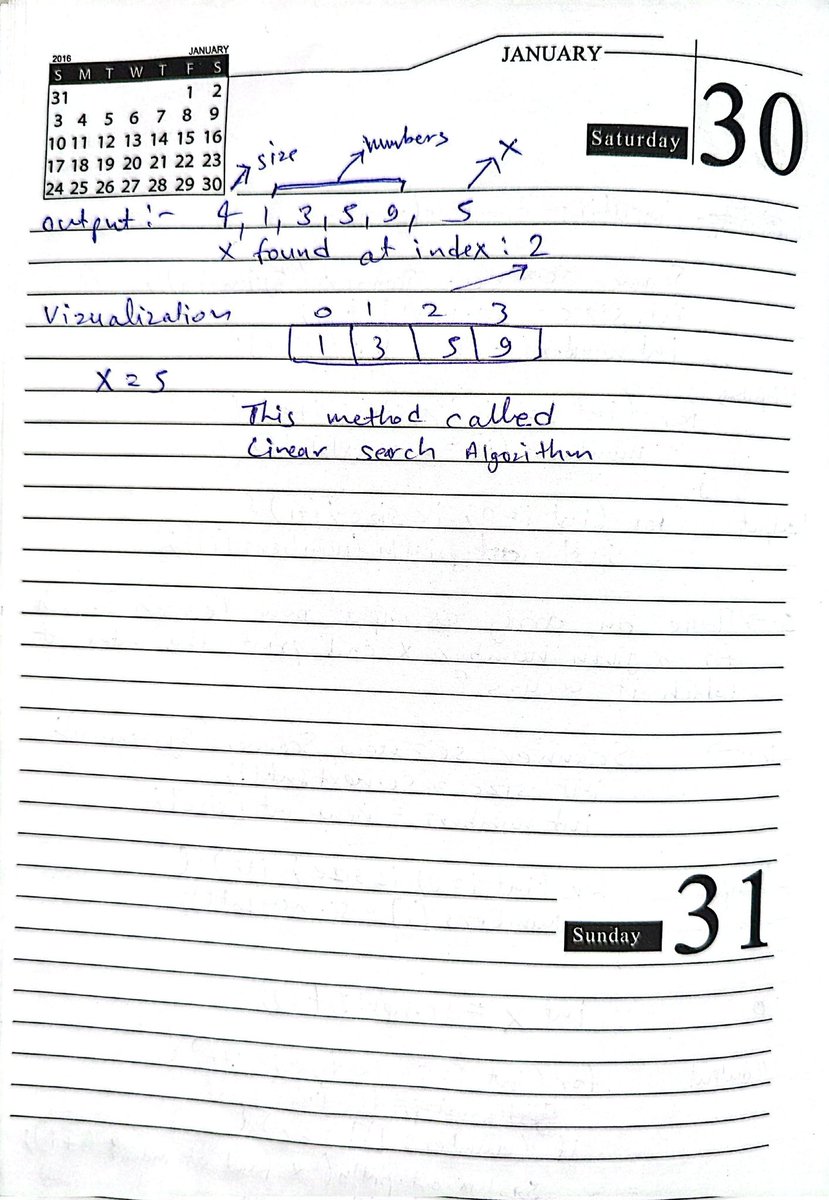 2016 JANUARY
S M T W T F S
31 1 2
3 4 5 6 7 8 9
10 11 12 13 14 15 16
17 18 19 20 21 22 23
24 25 26 27 28 29 30
JANUARY
Saturday 30
size numbers X
output :- 4, 1, 3, 5, 9, 5
X found at index : 2
Vizualization 0 1 2 3
1 3 5 9
X = 5
This method called
Linear search Algorithm
Sunday 31